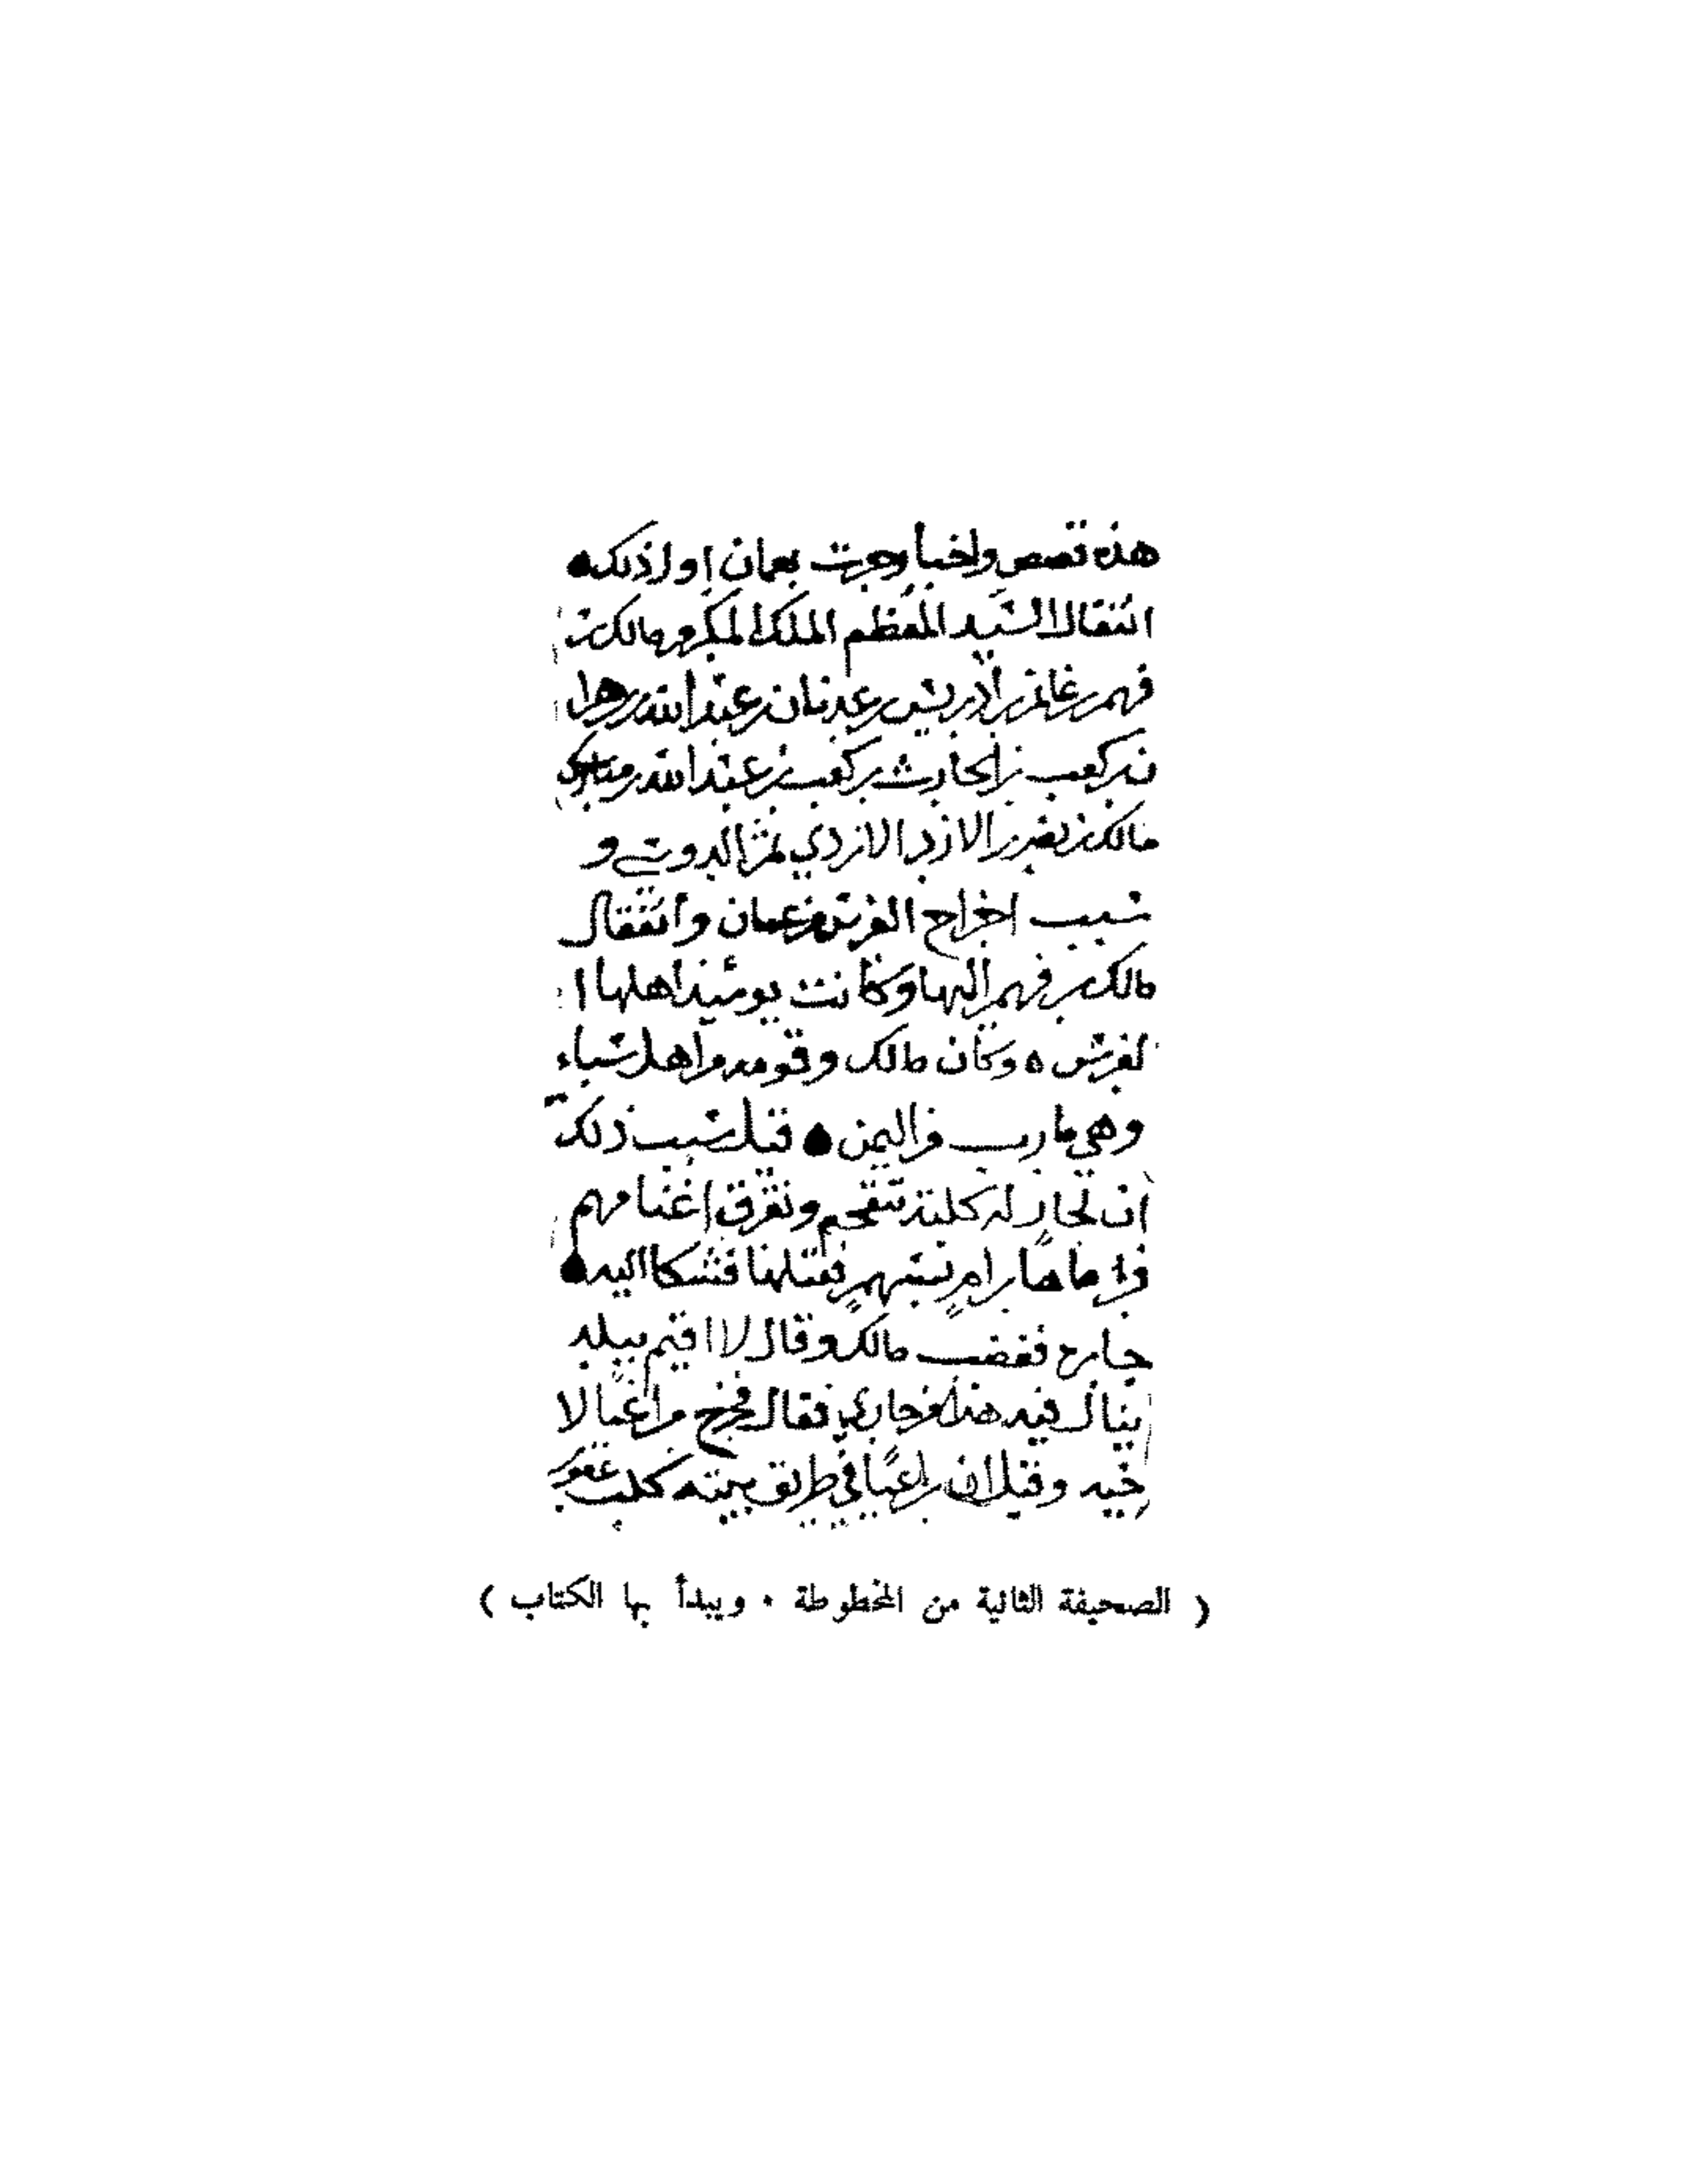 هذه قصص واخبار جرت بعمان اول ذلك
انتقال السيد المعظم الملك المكرم مالك بن
فهم بن غانم بن ادريس بن عدنان بن عبد الله بن زهرا
ن بن كعب بن الحارث بن كعب بن عبد الله بن
مالك بن نصر بن الازد الازدي ثم الدوسي و
سبب اخراج الفرس من عمان وانتقال
مالك بن فهم اليها وكانت يومئذ اهلها ا
لفرس ٥ وكان مالك وقومه من اهل سباء
وهي مارب من اليمن قيل سبب ذلك
ان لجار له كلبة تتقحم وتفرق اغنامهم
فرماها رام بسهم فقتلها فشكا اليه
جاره فغضب مالك وقال لا اقيم ببلد
ينال فيه هذا من جاري فقال فخرج مراغما لا
خيه وقيل ان راعيا في طريق بيته كلب عقور
( الصحيفة الثانية من المخطوطة ٠ ويبدأ بها الكتاب )